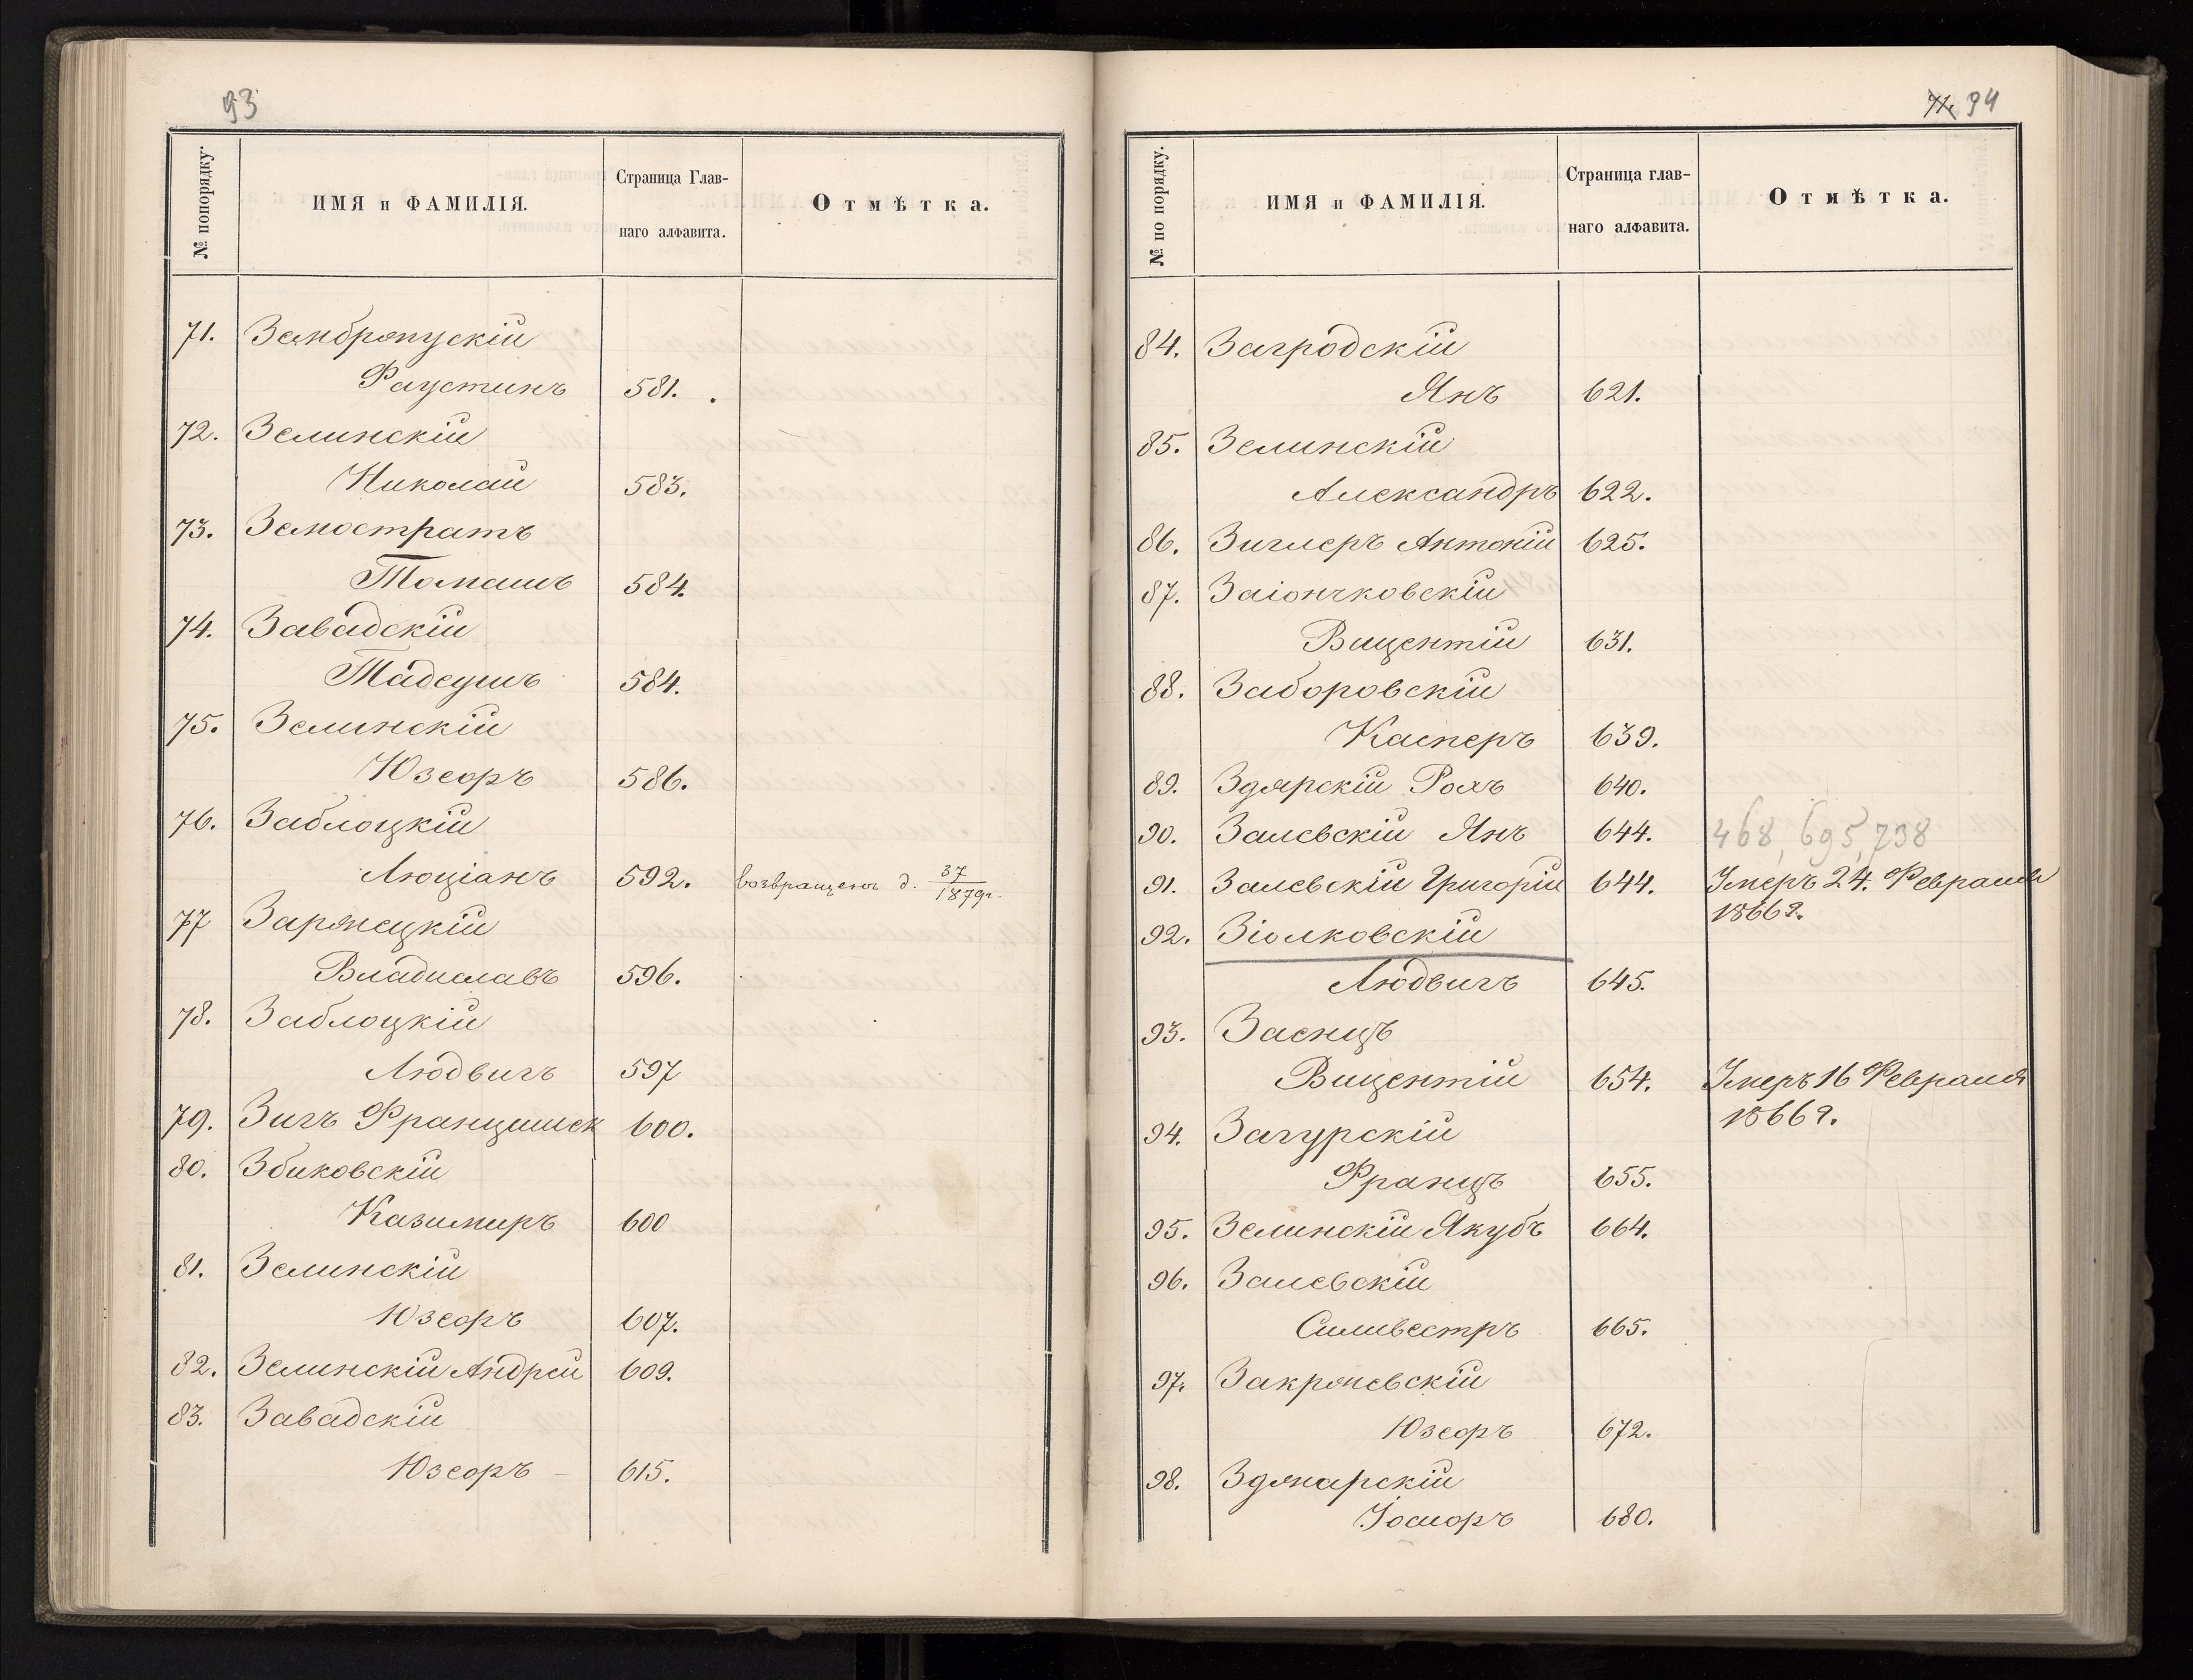 93
№ попорядку.
ИМЯ и ФАМИЛІЯ.
Страница Глав-
наго алфавита.
Отмѣтка.
71. Зембрпускій
Фаустинъ 581.
72. Зелинскій
Николай 583.
73. Земостратъ
Томашъ 584.
74. Завадскій
Тадеушъ 584.
75. Зелинскій
Юзефъ 586.
76. Заблоцкій
Люціанъ 592. возвращенъ д. 37/1879г.
77 Заржецкій
Владиславъ 596.
78. Заблоцкій
Людвигъ 597
79. Зигъ Францишек 600.
80. Збиковскій
Казимиръ 600
81. Зелинскій
Юзефъ 607.
82. Зелинскій Андрей 609.
83. Завадскій
Юзефъ 615.
71. 94
№ по порядку.
ИМЯ и ФАМИЛІЯ.
Страница глав-
наго алфавита.
Отмѣтка.
84. Загродскій
Янъ 621.
85. Зелинскій
Александръ 622.
86. Зиглеръ Антоній 625.
87. Заіончковскій
Вицентій 631.
88. Заборовскій
Касперъ 639.
89. Здярскій Рохъ 640.
90. Залевскій Янъ 644. 468, 695, 738
91. Залевскій Григорій 644. Умеръ 24. Февраля
1866г.
92. Зіолковскій
Людвигъ 645.
93. Заенцъ
Вицентій 654. Умеръ 16 Февраля
1866г.
94. Загурскій
Францъ 655.
95. Зелинскій Якубъ 664.
96. Залевскій
Сильвестръ 665.
97. Закржевскій
Юзефъ 672.
98. Зджарскій
Іосифъ 680.